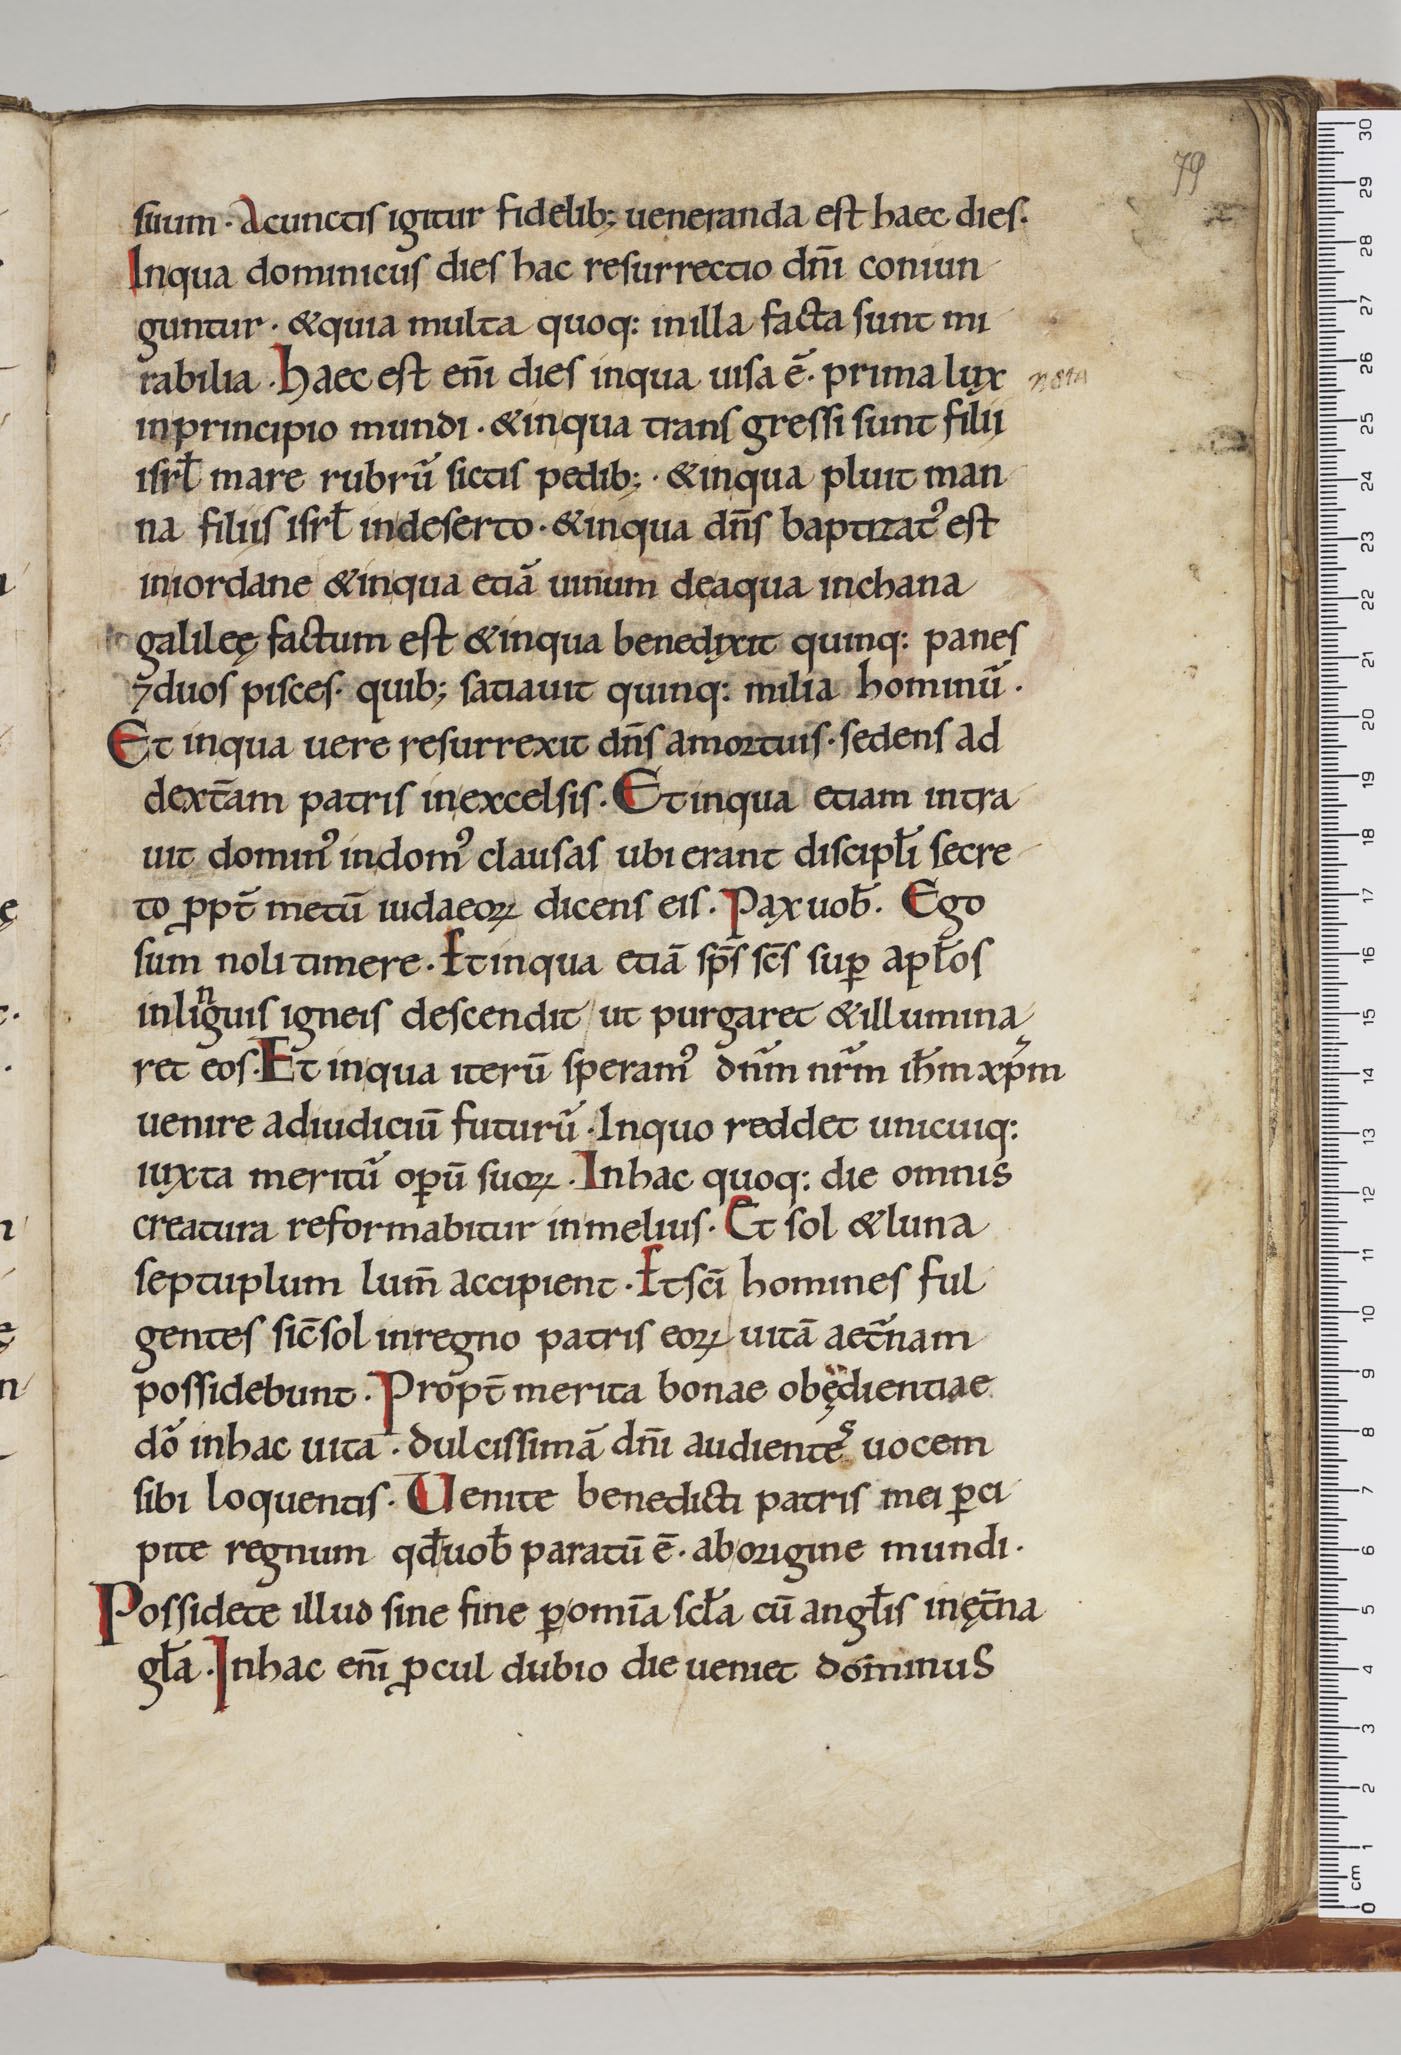 79
suum · Acunctis igitur fidelib; ueneranda est haec dies.
Inqua dominicus dies hac resurrectio dn̄i coniun
guntur · &quia multa quoq: inilla facta sunt mi
rabilia · haec est eni̅ dies inqua uisa ē · prima lux nota
inprincipio mundi · &inqua transgressi sunt filii
isrł mare rubrū sictis pedib; · &inqua pluit man
na filiis isrł indeserto · &inqua dn̄s baptizat᾿ est
iniordane &inqua etiā uinum deaqua inchana
galileę factum est &inqua benedixit quinq: panes
⁊duos pisces · quib; satiauit quinq: milia hominū ·
Et inqua uere resurrexit dn̄s amortuis · sedens ad
dext̄am patris inexcelsis · Et inqua etiam intra
uit domin᾿ indom᾿ clausas ubi erant discipłi secre
to ꝓpt̄ metū iudaeoꝝ dicens eis · Pax uob̄ · Ego
sum noli timere · Et inqua etiā sp̄s sc̄s suꝑ apłos
inlinguis igneis descendit ut purgaret &illumina
ret eos · Et inqua iterū speram᾿ dn̄m nr̄m ih̄m xp̄m
uenire adiudiciū futurū · Inquo reddet unicuiq:
iuxta meritū oꝑū suoꝝ · Inhac quoq: die omnis
creatura reformabitur inmelius · Et sol &luna
septuplum lum̄ accipient · Et sc̄i homines ful
gentes sic̄ sol inregno patris eoꝝ uitā aet̄nam
possidebunt · Propt̄ merita bonae obędientiae
dō inhac uita · dulcissimā dn̄i audientes uocem
sibi loquentis · Uenite benedicti patris mei ꝑci
pite regnum qd̄ uob̄ paratū ē · aborigine mundi ·
Possidete illud sine fine ꝑ omīa scła cū angłis inęt̄na
gła · Inhac eni̅ ꝓcul dubio die ueniet dominus